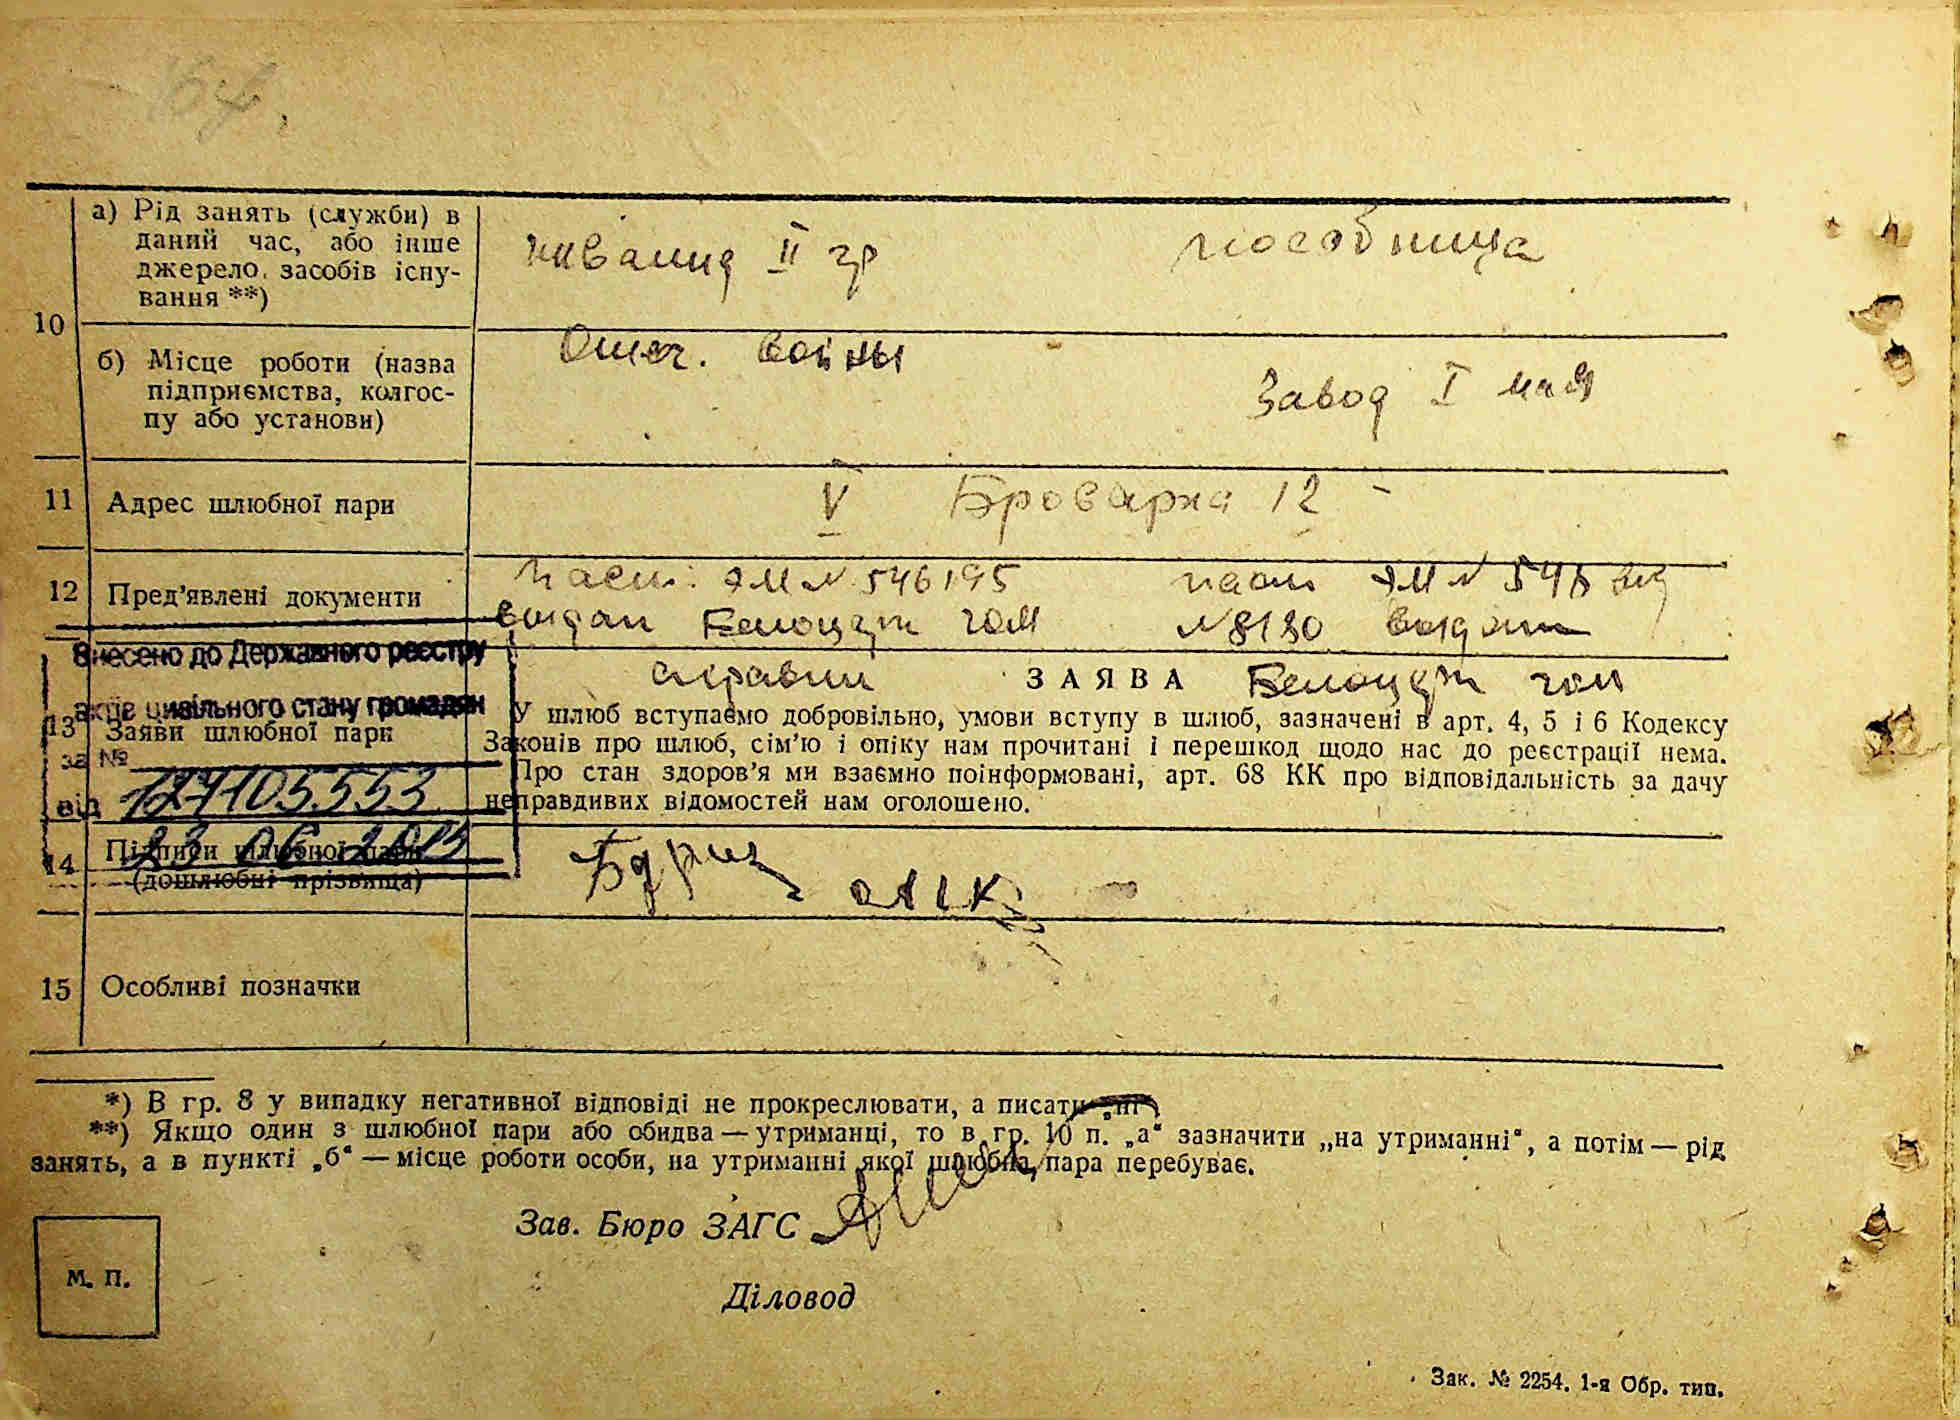 164.
10
а) Рід занять (служби) в
даний час, або інше
джерело засобів існу-
вання **)
инвалид II гр
пособница
б) Місце роботи (назва
підприємства, колгос-
пу або установи)
Отеч. войны
Завод I мая
11
Адрес шлюбної пари
V Броварна 12 -
12
Пред'явлені документи
пасп. ЯМ N 546195
выдан Белоцерк ГОМ
пасп ЯМ N
N 8130 выдан
Белоцерк гом
Внесено до Державного реєстру
актів цивільного стану громадян
за №
127105553
від
23 06
13
Заяви шлюбної пари
ЗАЯВА
У шлюб вступаємо добровільно, умови вступу в шлюб, зазначені в арт. 4, 5 і 6 Кодексу
Законів про шлюб, сім'ю і опіку нам прочитані і перешкод щодо нас до реєстрації нема.
Про стан здоров'я ми взаємно поінформовані, арт. 68 КК про відповідальність за дачу
неправдивих відомостей нам оголошено.
14
Підписи шлюбної пари
(дошлюбні прізвища)
15
Особливі позначки
*) В гр. 8 у випадку негативної відповіді не прокреслювати, а писати „ні“
**) Якщо один з шлюбної пари або обидва — утриманці, то в гр. 10 п. „а“ зазначити „на утриманні“, а потім — рід
занять, а в пункті „б“ — місце роботи особи, на утриманні якої шлюбна пара перебуває.
Зав. Бюро ЗАГС
Діловод
М. П.
Зак. № 2254. 1-я Обр. тип.